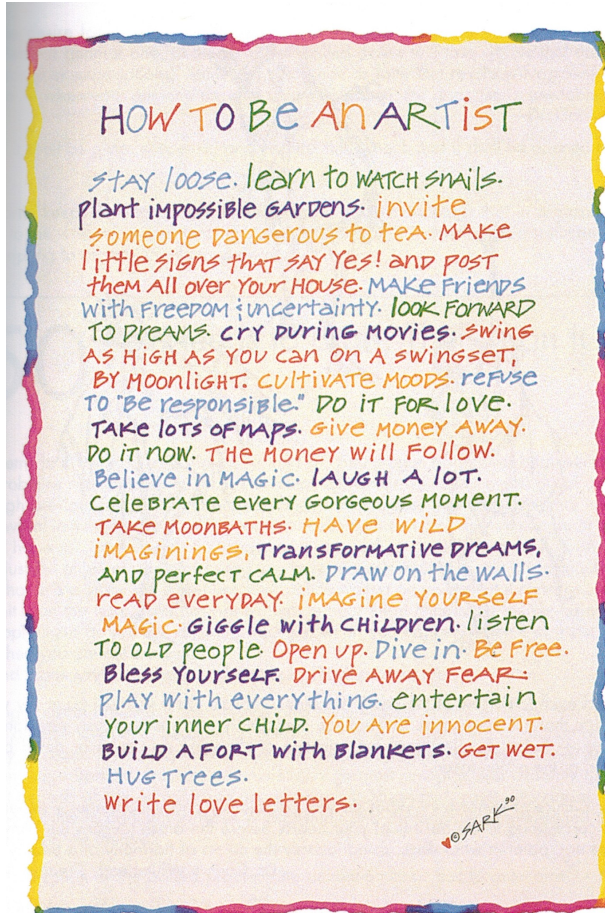 HOW TO BE AN ARTIST
STAY loose. learn to WATCH snails.
plant iMPOSSIBLE GARDENS. invite
someone DANgerous to teA. MAKE
little signs THAT SAY Yes! and post
them All over Your House. MAKE Friends
with FreeDOM & uncertainty. look FORWARD
TO DreAMS. Cry During Movies. SWING
AS HiGH AS YOU can on A swingset,
BY MOONliGHT. CultivATE MOODS. reFuse
TO "Be responsiBle." DO iT FOR love.
TAKE lots of naps. Give MONEY AWAY.
DO iT NOW. THe Money will Follow.
Believe in MAGic. lAUGH A lOT.
CeleBRATE every GOrGeous MOMeNT.
TAKE MOONBATHS. HAVE WilD
iMAGiNiNGS, TransFORMATive DreAMS,
AND perfecT CAlM. DrAW On the WAlls.
reAD everyDAY. iMAGine YOURSelF
MAGic. GiGGle with CHilDren. listen
TO OlD people. Open up. Dive in. Be Free.
Bless Yourself. Drive AWAY FeAr.
plAY with everything. entertain
Your inner CHilD. You Are innocent.
BUilD A FORT with BlanKets. GeT WeT.
HUG Trees.
Write love letters.
© SARK 90